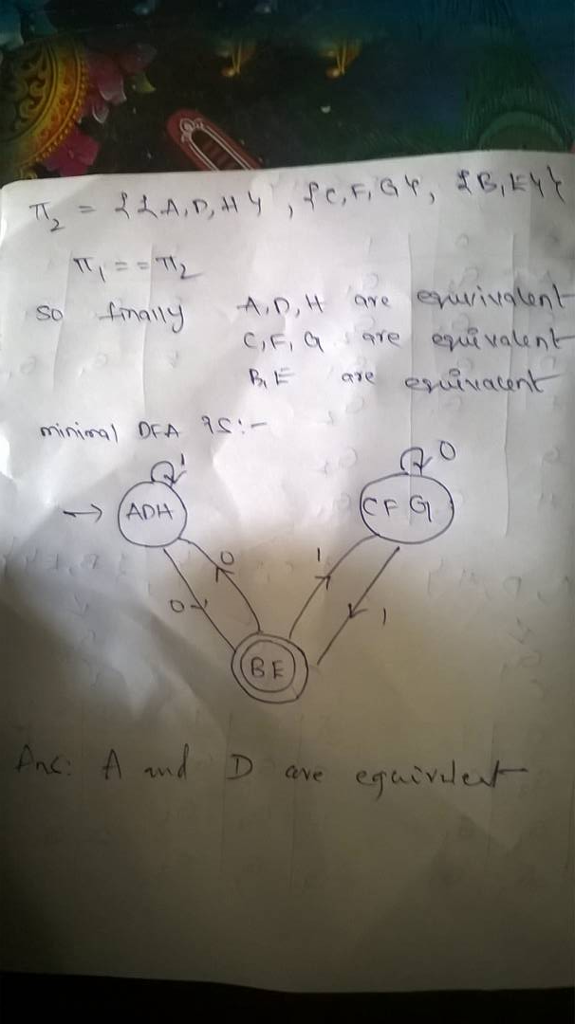 π₂ = {{A,D,H}, {C,F,G}, {B,E}}
π₁ == π₂
so finally A,D,H are equivivalent
C,F,G are equivalent
B,E are equivalent
minimal DFA is:-
1 0
→ ADH CFG
0 1
0 1
BE
Ans: A and D are equivalent